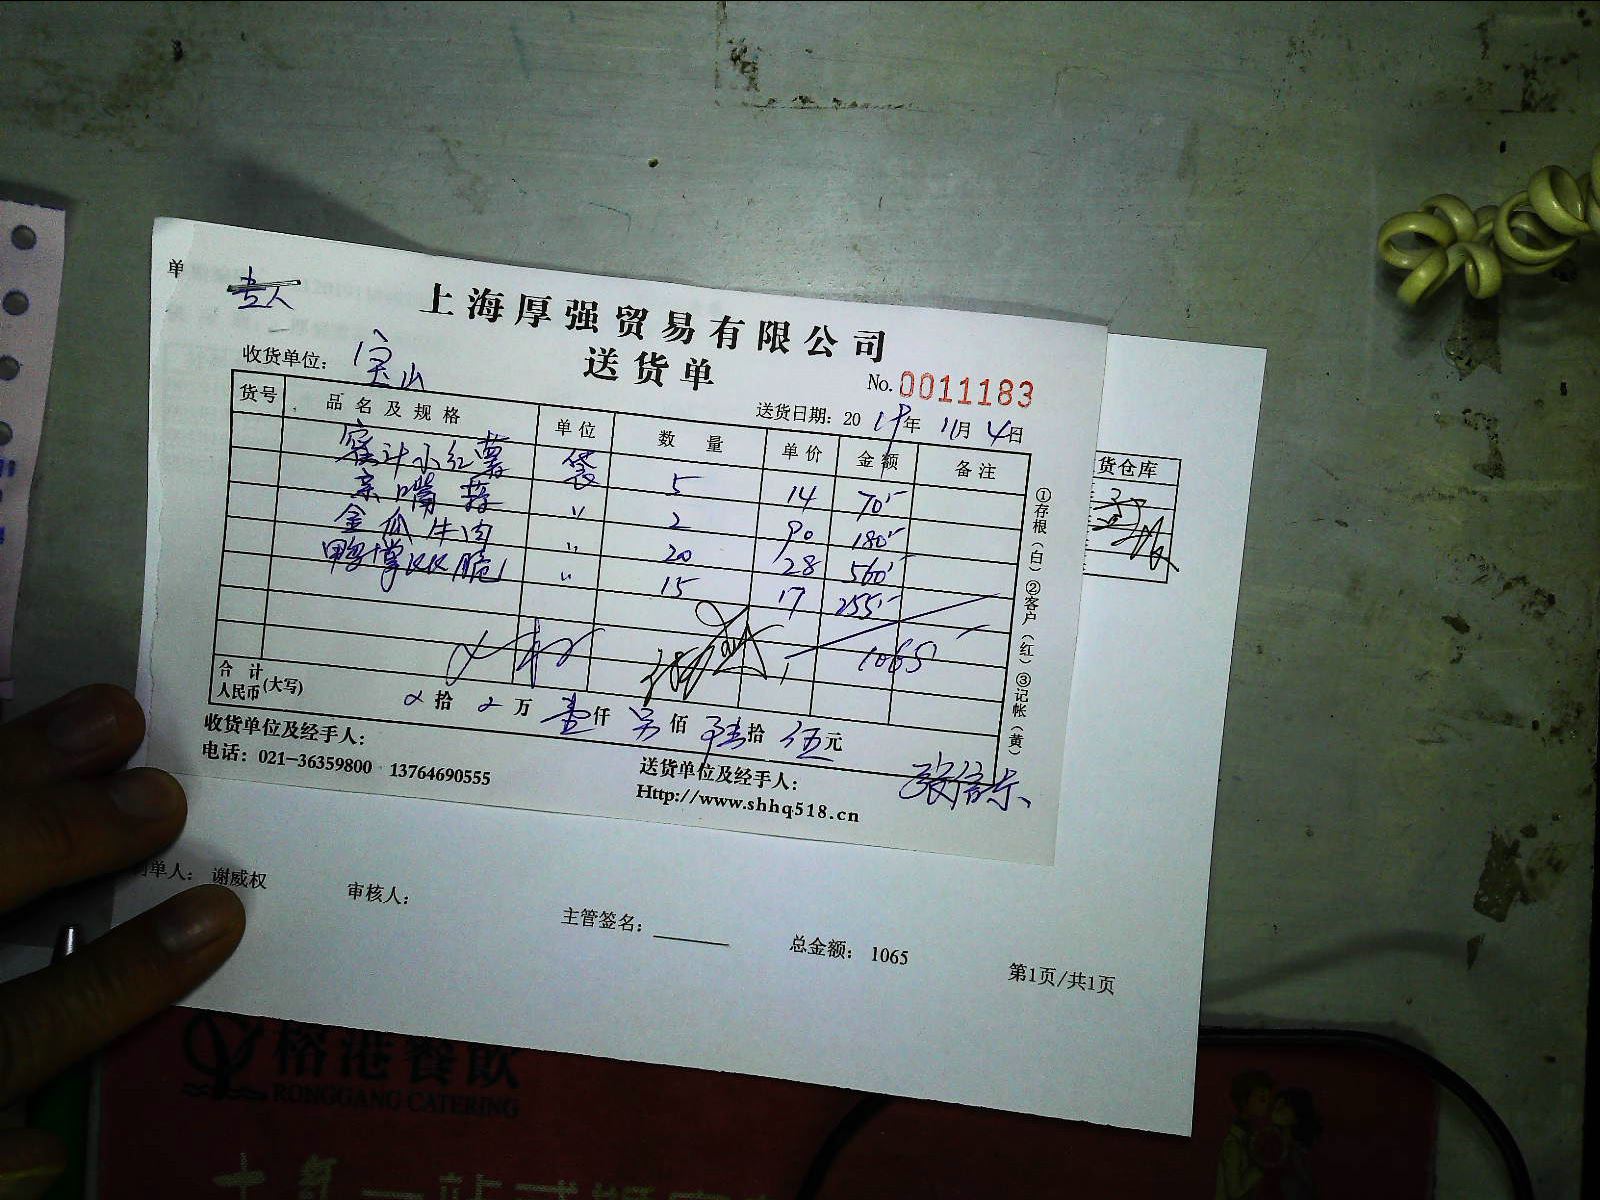 单
上海厚强贸易有限公司
送货单
收货单位： 宝山
No. 0011183
送货日期： 2019年 11月 4日
货号 品名及规格 单位 数量 单价 金额 备注
蜜汁小红薯 袋 5 14 70
亲嘴蒜 〃 2 90 180
金瓜牛肉 〃 20 28 560
鸭掌KK脆 〃 15 17 255
1065
合计人民币(大写) 拾 万 壹仟 另佰 陆拾 伍元
收货单位及经手人：
送货单位及经手人：
电话：021-36359800 13764690555
Http://www.shhq518.cn
①存根（白）②客户（红）③记帐（黄）
货仓库
制单人： 谢威权
审核人：
主管签名：
总金额： 1065
第1页/共1页
榕港餐飲
RONGGANG CATERING